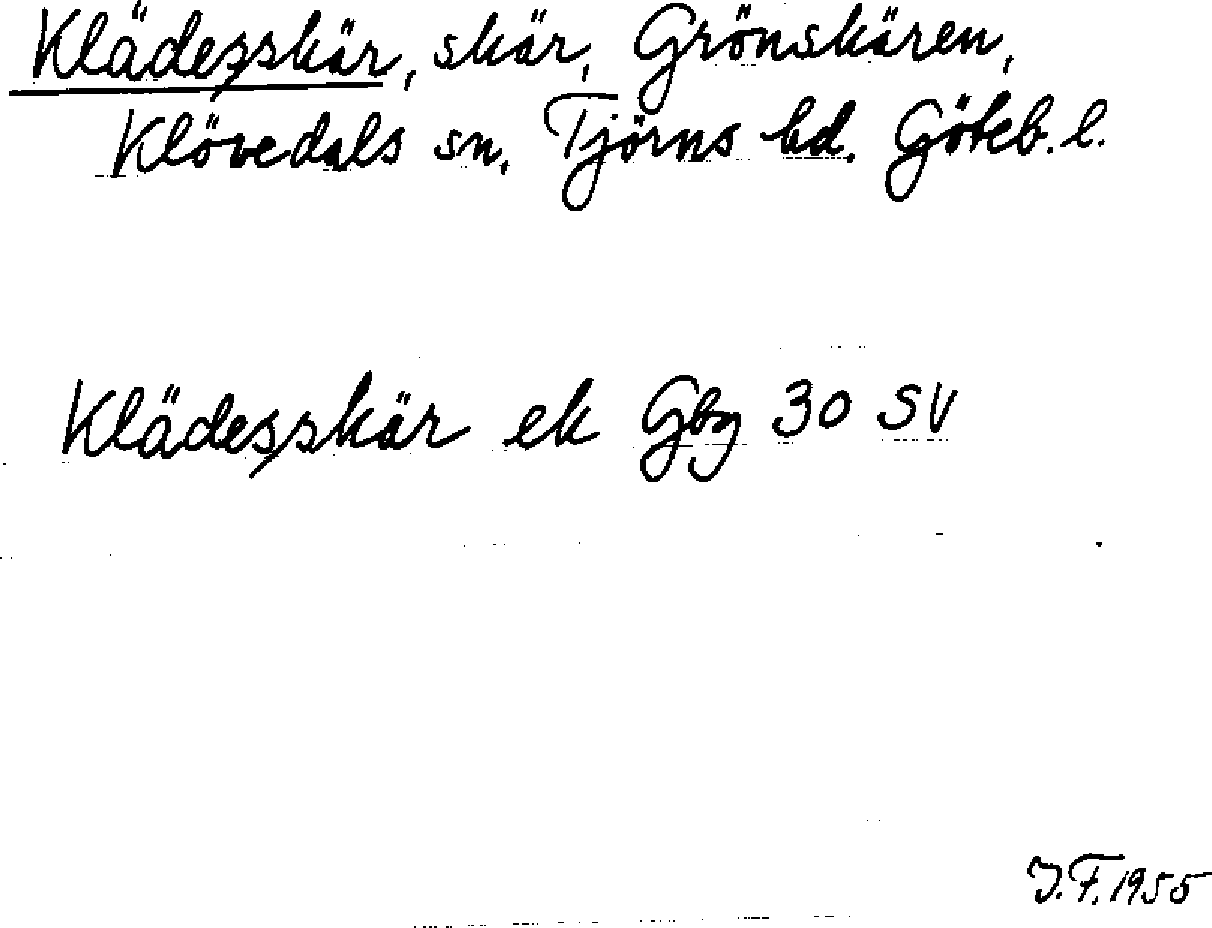 Klädesskär, skär, Grönskären,
Klövedals sn, Tjörns hd. Göteb. l.
Klädesskär ek Gbg 30 SV
J.F. 1955